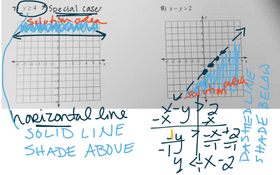 7) y ≥ 4 Special case
solution area
horizontal line
SOLID LINE
SHADE ABOVE
9) x - y > 2
solution area
x - y > 2
-x -x
-1y > -x + 2
-1 -1 -1
y < x - 2
DASHED LINE
SHADE BELOW